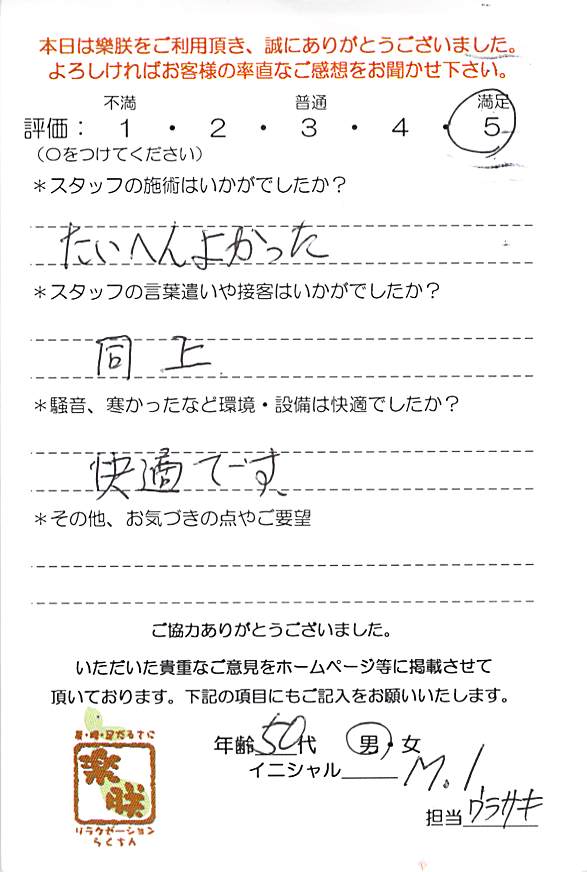 本日は樂朕をご利用頂き、誠にありがとうございました。
よろしければお客様の率直なご感想をお聞かせ下さい。
不満 普通 満足
評価： 1 ・ 2 ・ 3 ・ 4 ・ 5
（○をつけてください）
＊スタッフの施術はいかがでしたか？
たいへんよかった
＊スタッフの言葉遣いや接客はいかがでしたか？
同上
＊騒音、寒かったなど環境・設備は快適でしたか？
快適です、
＊その他、お気づきの点やご要望
ご協力ありがとうございました。
いただいた貴重なご意見をホームページ等に掲載させて
頂いております。下記の項目にもご記入をお願いいたします。
年齢 50 代 男・女
イニシャル M.I
担当 ウラサキ
肩・腰・足だるさに
楽朕
リラクゼーション
らくちん